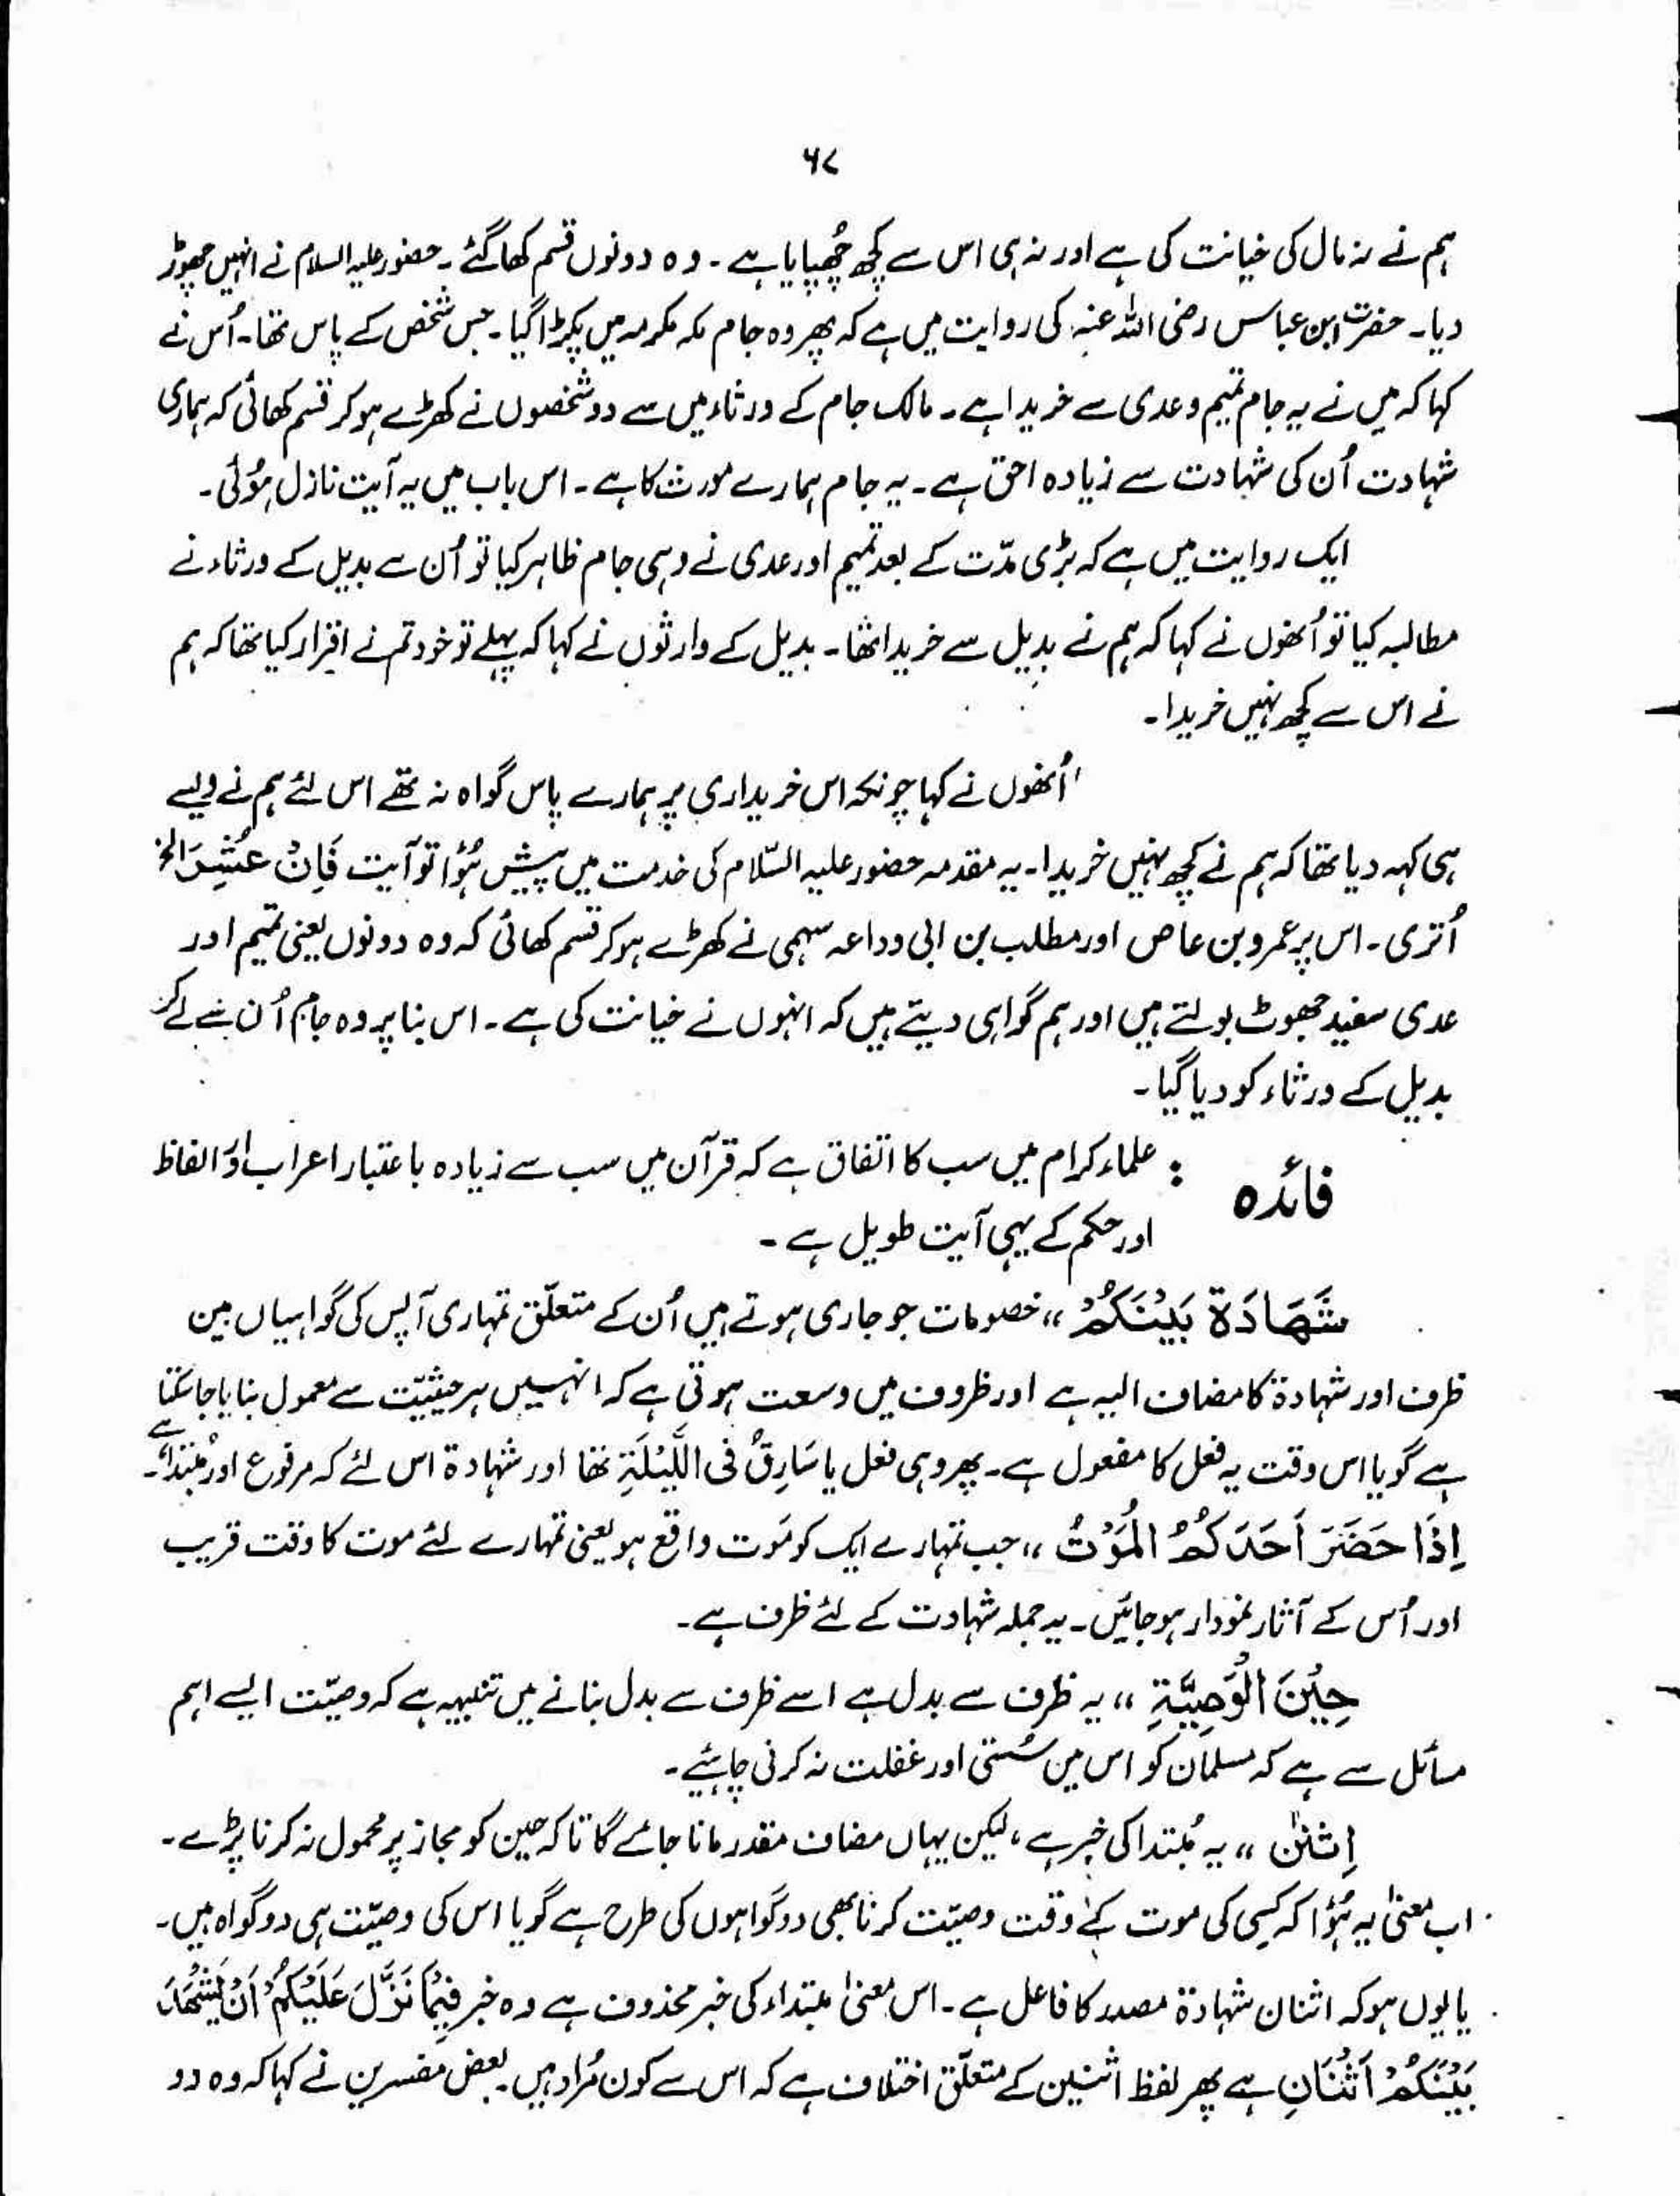 ۶۷
ہم نے نہ مال کی خیانت کی ہے اور نہ ہی اس سے کچھ چُھپایا ہے ۔ وہ دونوں قسم کھا گئے ۔ حضور علیہ السلام نے انہیں چھوڑ
دیا ۔ حضرت ابن عباس رضی اللہ عنہ کی روایت میں ہے کہ پھر وہ جام مکہ مکرمہ میں پکڑا گیا ۔ جس شخص کے پاس تھا ۔ اُس نے
کہا کہ میں نے یہ جام تمیم و عدی سے خریدا ہے ۔ مالک جام کے ورثاء میں سے دو شخصوں نے کھڑے ہو کر قسم کھائی کہ ہماری
شہادت اُن کی شہادت سے زیادہ احق ہے ۔ یہ جام ہمارے مورث کا ہے ۔ اس باب میں یہ آیت نازل ہوئی ۔
ایک روایت میں ہے کہ بڑی مدّت کے بعد تمیم اور عدی نے وہی جام ظاہر کیا تو اُن سے بدیل کے ورثاء نے
مطالبہ کیا تو اُنھوں نے کہا کہ ہم نے بدیل سے خریدا تھا ۔ بدیل کے وارثوں نے کہا کہ پہلے تو خود تم نے اقرار کیا تھا کہ ہم
نے اس سے کچھ نہیں خریدا ۔
اُنھوں نے کہا چونکہ اس خریداری پر ہمارے پاس گواہ نہ تھے اس لئے ہم نے ویسے
ہی کہہ دیا تھا کہ ہم نے کچھ نہیں خریدا ۔ یہ مقدمہ حضور علیہ السّلام کی خدمت میں پیش ہُوا تو آیت فَاِنْ عُثِرَ الخ
اُتری ۔ اس پر عمرو بن عاص اور مطلب بن ابی وداعہ سہمی نے کھڑے ہو کر قسم کھائی کہ وہ دونوں یعنی تمیم اور
عدی سفید جھوٹ بولتے ہیں اور ہم گواہی دیتے ہیں کہ انہوں نے خیانت کی ہے ۔ اس بنا پر وہ جام اُن سے لے کر
بدیل کے ورثاء کو دیا گیا ۔
فائدہ : علماء کرام میں سب کا اتفاق ہے کہ قرآن میں سب سے زیادہ باعتبار اعراب اور الفاظ
اور حکم کے یہی آیت طویل ہے ۔
شَهَادَةُ بَيْنِكُمْ ،، خصومات جو جاری ہوتے ہیں اُن کے متعلّق تمہاری آپس کی گواہیاں بین
ظرف اور شہادۃ کا مضاف الیہ ہے اور ظروف میں وسعت ہوتی ہے کہ انہیں ہر حیثیّت سے معمول بنایا جا سکتا
ہے گویا اس وقت یہ فعل کا مفعول ہے ۔ پھر وہی فعل یا سَارِقُ فی اللَّیْلَةِ تھا اور شہادۃ اس لئے کہ مرفوع اور مُبتداء ہے ۔
اِذَا حَضَرَ اَحَدَكُمُ الْمَوْتُ ،، جب تمہارے ایک کو مَوت واقع ہو یعنی تمہارے لئے موت کا وقت قریب
اور اُس کے آثار نمودار ہو جائیں ۔ یہ جملہ شہادت کے لئے ظرف ہے ۔
حِيْنَ الْوَصِيَّةِ ،، یہ ظرف سے بدل ہے اسے ظرف سے بدل بنانے میں تنبیہہ ہے کہ وصیّت ایسے اہم
مسائل سے ہے کہ مسلمان کو اس میں سُستی اور غفلت نہ کرنی چاہئے ۔
اِثْنٰنِ ،، یہ مُبتدا کی خبر ہے ، لیکن یہاں مضاف مقدر مانا جائے گا تاکہ حین کو مجاز پر محمول نہ کرنا پڑے ۔
اب معنیٰ یہ ہُوا کہ کسی کی موت کے وقت وصیّت کرنا بھی دو گواہوں کی طرح ہے گویا اس کی وصیّت ہی دو گواہ ہیں ۔
یا یوں ہو کہ اثنان شہادۃ مصدر کا فاعل ہے ۔ اس معنیٰ مبتداء کی خبر محذوف ہے وہ خبر فِیْمَا نَزَّلَ عَلَیْکُمْ اَنْ یَّشْھَدَ
بَیْنَکُمْ اثْنَانِ ہے پھر لفظ اثنین کے متعلّق اختلاف ہے کہ اس سے کون مُراد ہیں ۔ بعض مفسرین نے کہا کہ وہ دو